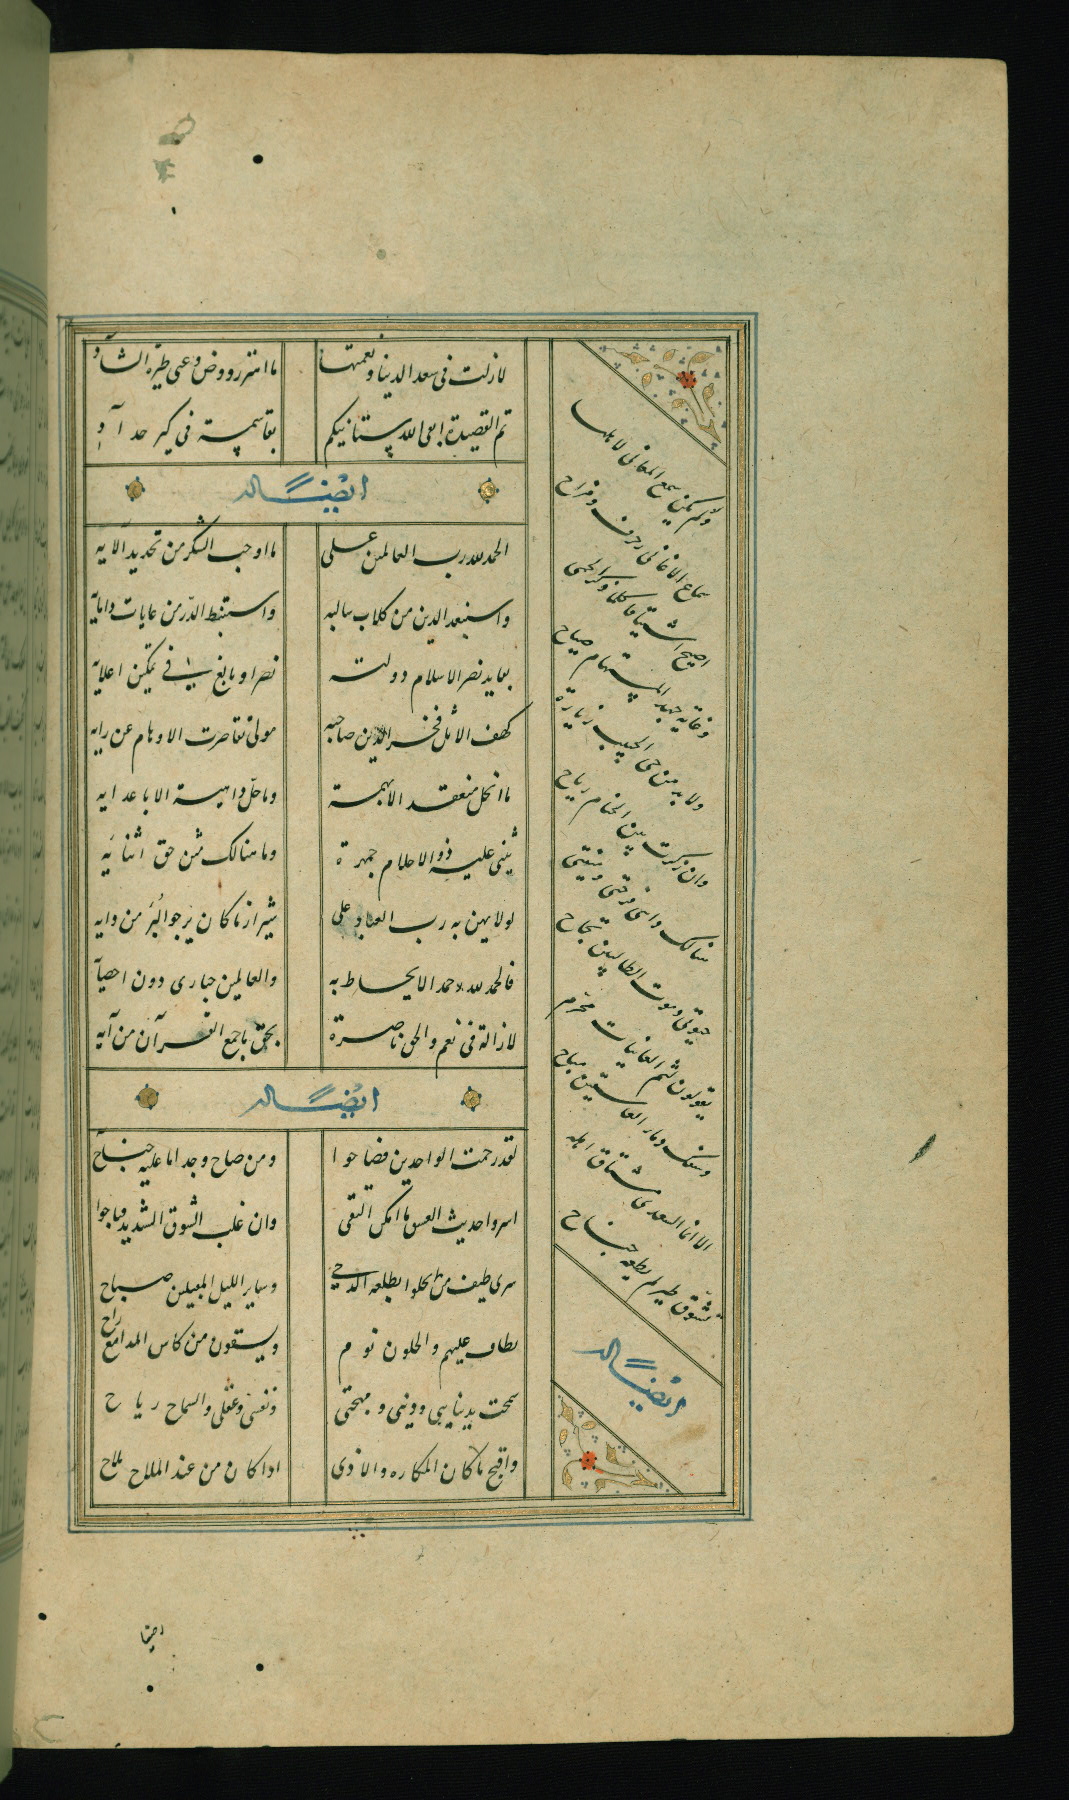 لازلت فی سعد الدنیا و نعمتها ما اهتز روض وغنی طیره الشادو
تم القصیدة ابقی الله نیکم بقا سمة فی کبر حدا
ایضا له
الحمد لله رب العالمین علی ما اوجب الشکر من تجدید آلایه
واستنبط الدر من غایات دامایه
نصرا و بالغ فی تمکین اعلایه
کهف الاماثل فخر الدین صاحبه مولی تقاصرت الاوهام عن رایه
ما انحل منعقد الا بهمته وما حل داهیة الا باعدایه
یثنی علیه ذوو الاحلام جمهرة وما هنالک مثن حق اثنایه
لولا یمن به رب العباد علی شیراز ما کان یرجو البر من دایه
فالحمد لله حمدا لا یحاط به والعالمین حیاری دون احصایه
لازال فی نعم والحق ناصره بحق ما جمع القرآن من آیه
ایضا له
لقد رحمت الواجدین فصاحوا ومن صاح وجدا ما علیه جناح
اسروا حدیث العشق ما امکن التقی وان غلب الشوق الشدید فباحوا
سری طیف من یجلو بطلعته الدجی وسایر اللیل المقبلین صباح
یطاف علیهم والخلیون نوم ویسقون من کاس المدامع راح
سمحت بدنیایی و دینی و مهجتی ونفسی وعقلی والسماح رباح
واقبح ما کان المکاره والاذی اذا کان من عند الملاح ملاح
ولو لم یکن سمع المعانی لاهلها
سماع الاغانی زخرف و مزاح
اصیح اشتیاقا کلما ذکر الحمی
وغایة جهد المستهام صیاح
ولا بد من حی الحبیب زیارة
وان رکزت بین الخیام رماح
هنالک دائی فرحتی و منیتی
حیوتی وموت الطالبین نجاح
یقولون لثم الغانیات محرم
وسفک دماء العاشقین مباح
الا انما السعدی مشتاق اهله
تشوق طیر لم یطعه جناح
ایضا له
ایضا